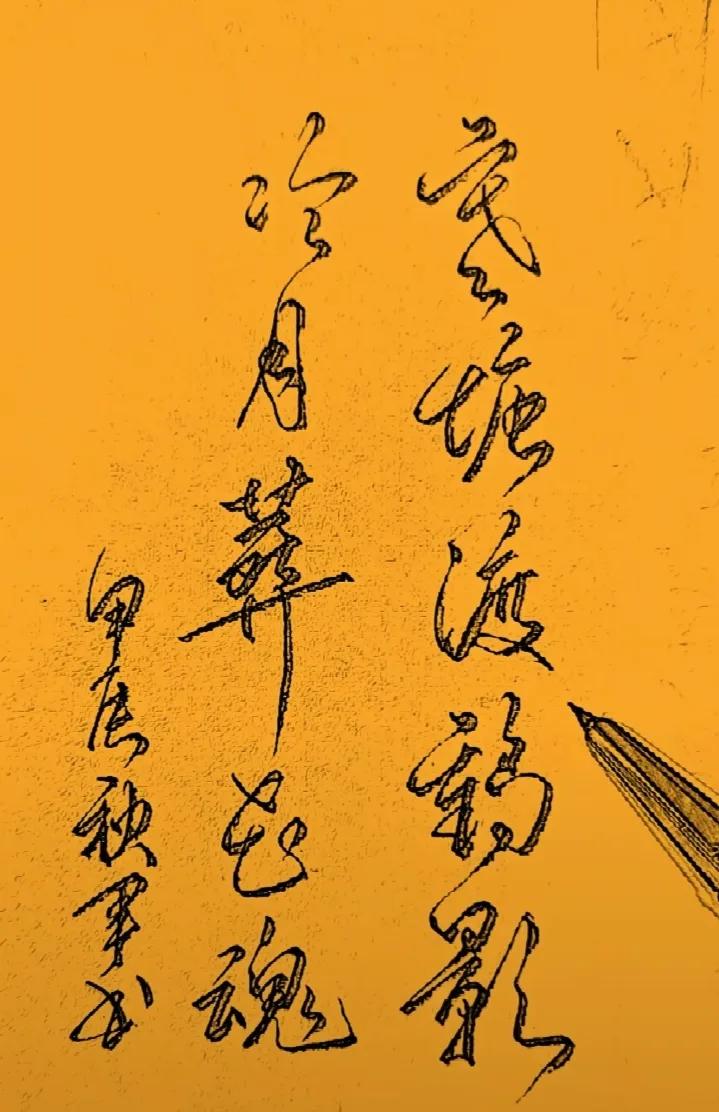 寒塘渡鹤影
冷月葬花魂
甲辰秋军书